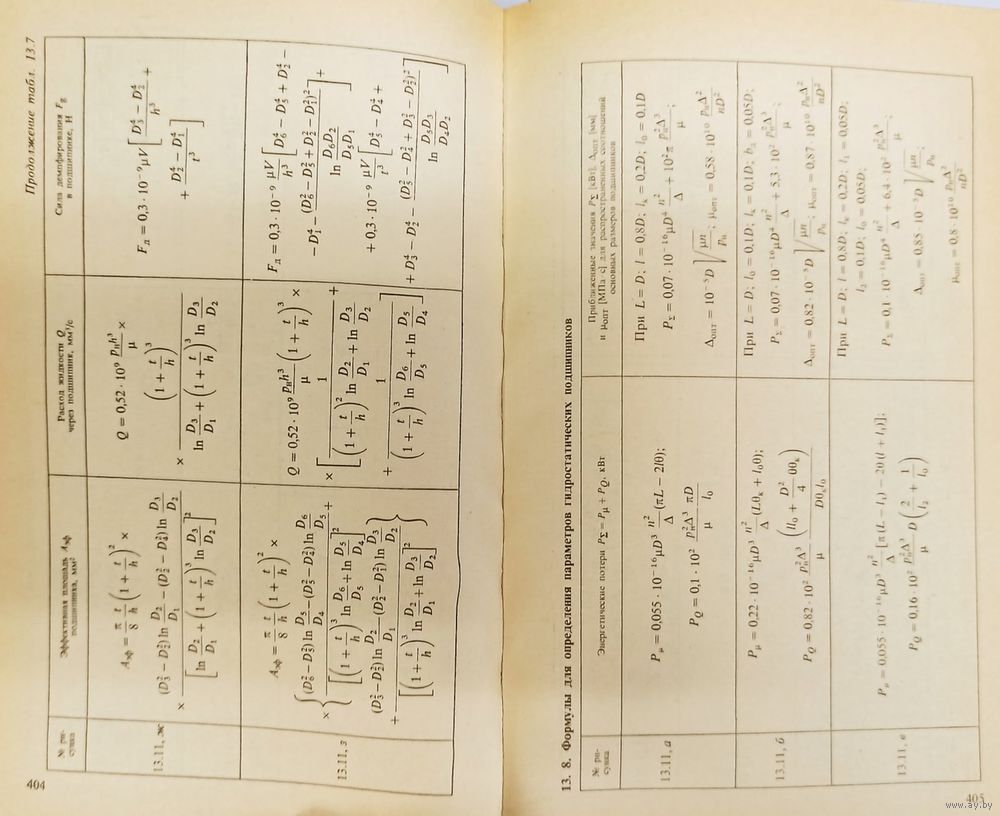 Продолжение табл. 13.7
№ ри-
сунка
Эффективная площадь Aэф
подшипника, мм²
Расход жидкости Q
через подшипник, мм³/с
Сила демпфирования Fд
в подшипнике, Н
13.11, ж
Aэф = π/8 t/h (1 + t/h)² ×
× (D₃² − D₂²) ln D₂/D₁ − (D₂² − D₁²) ln D₃/D₂
[ln D₂/D₁ + (1 + t/h)³ ln D₃/D₂]²
Q = 0,52 · 10⁹ pнh³/μ ×
× (1 + t/h)³
ln D₃/D₁ + (1 + t/h)³ ln D₃/D₂
Fд = 0,3 · 10⁻⁹ μV [D₃⁴ − D₂⁴/h³ +
+ D₂⁴ − D₁⁴/t³]
13.11, з
Aэф = π/8 t/h (1 + t/h)² ×
× { (D₆² − D₅²) ln D₅/D₄ − (D₅² − D₄²) ln D₆/D₅ +
[(1 + t/h)³ ln D₆/D₅ + ln D₅/D₄]²
+ (D₃² − D₂²) ln D₂/D₁ − (D₂² − D₁²) ln D₃/D₂ }
[(1 + t/h)³ D₂/D₁ + ln D₃/D₂]²
Q = 0,52 · 10⁹ pнh³/μ (1 + t/h)³ ×
× [ 1 +
(1 + t/h)² ln D₂/D₁ + ln D₃/D₂
+ 1 ]
(1 + t/h)³ ln D₆/D₅ + ln D₅/D₄
Fд = 0,3 · 10⁻⁹ μV/h³ [D₆⁴ − D₅⁴ + D₂⁴ −
− D₁⁴ − (D₆² − D₅² + D₂² − D₁²)²] +
ln D₆D₂/D₅D₁
+ 0,3 · 10⁻⁹ μV/t³ [D₅⁴ − D₄⁴ +
+ D₃⁴ − D₂⁴ − (D₅² − D₄² + D₃² − D₂²)²]
ln D₅D₃/D₄D₂
404
13. 8. Формулы для определения параметров гидростатических подшипников
№ ри-
сунка
Энергетические потери PΣ = Pμ + PQ, кВт
Приближенные значения PΣ [кВт], Δопт [мм]
и μопт [МПа·с] для распространенных соотношений
основных размеров подшипников
13.11, а
Pμ = 0,055 · 10⁻¹⁶μD³ n²/Δ (πL − 2lθ);
PQ = 0,1 · 10² pн²Δ³/μ πD/l₀
При L = D; l = 0,8D; lк = 0,2D; l₀ = 0,1D
PΣ = 0,07 · 10⁻¹⁶μD⁴ n²/Δ + 10²π pн²Δ³/μ;
Δопт = 10⁻⁵D √μn/pн; μопт = 0,58 · 10¹⁰ pнΔ²/nD²
13.11, б
Pμ = 0,22 · 10⁻¹⁶μD³ n²/Δ (Lθк + l₀θ);
PQ = 0,82 · 10² pн²Δ³/μ (ll₀ + D²/4 θθк)/Dθкl₀
При L = D; l₀ = 0,1D; lк = 0,1D; bд = 0,05D;
PΣ = 0,07 · 10⁻¹⁶μD⁴ n²/Δ + 5,3 · 10² pн²Δ³/μ;
Δопт = 0,82 · 10⁻⁵D √μn/pн; μопт = 0,87 · 10¹⁰ pнΔ²/nD²
13.11, в
Pμ = 0,055 · 10⁻¹⁶μD³ n²/Δ [π(L − l₁) − 2θ(l + l₁)];
PQ = 0,16 · 10² pн²Δ³/μ D (2/l₂ + 1/l₀)
При L = D; l = 0,8D; lк = 0,2D; l₁ = 0,05D;
l₂ = 0,1D; l₀ = 0,05D;
PΣ = 0,1 · 10⁻¹⁶μD⁴ n²/Δ + 6,4 · 10² pн²Δ³/μ;
Δопт = 0,85 · 10⁻⁵D √μn/pн
μопт = 0,8 · 10¹⁰ pнΔ²/nD²
405
www.ay.by